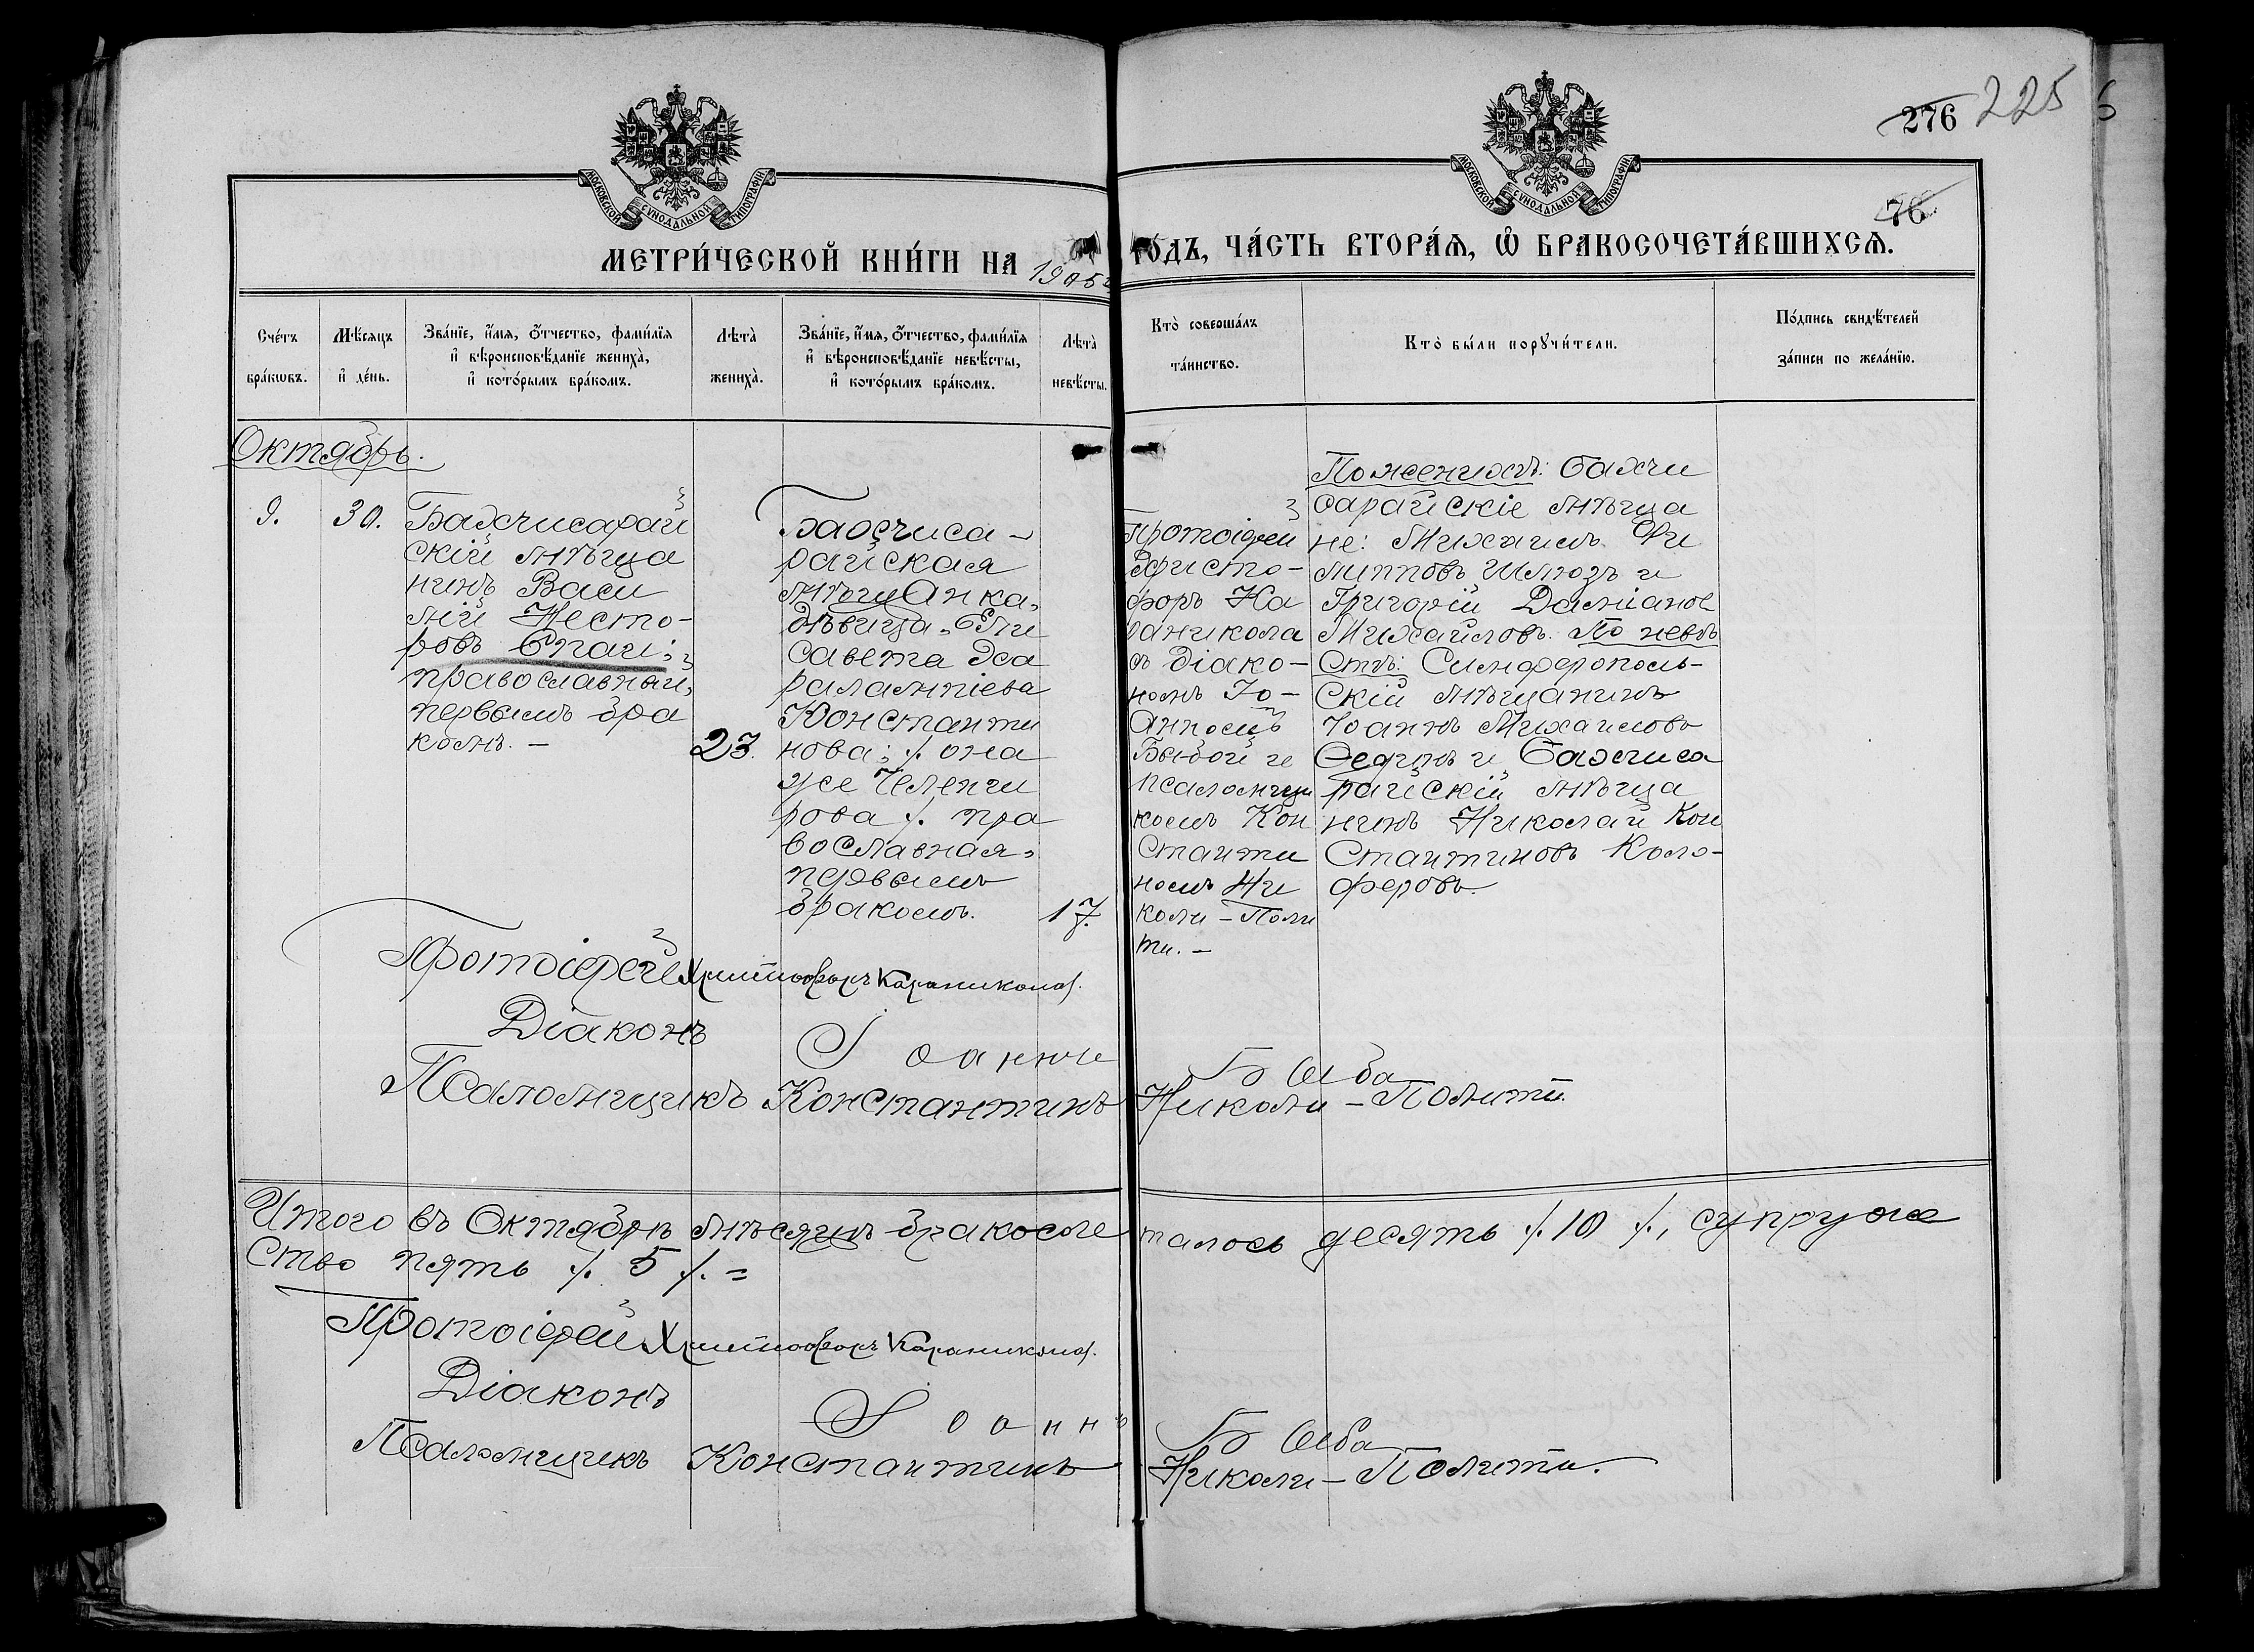 276 225 6
76
МОСКОВСКОЙ СУНОДАЛЬНОЙ ТИПОГРАФІИ
МОСКОВСКОЙ СУНОДАЛЬНОЙ ТИПОГРАФІИ
МЕТРИ́ЧЕСКОЙ КНИ́ГИ НА 1905 ГО́ДЪ, ЧА́СТЬ ВТОРА́Я, Ѡ БРАКОСОЧЕТА́ВШИХСЯ.
Сче́тъ
бра́кѡвъ.
Мѣ́сяцъ
и҆ де́нь.
Зва́нїе, и҆́мя, ѻ҆́тчество, фами́лїя
и҆ вѣроисповѣ́данїе жениха̀,
и҆ кото́рымъ бра́комъ.
Лѣта̀
жениха̀.
Зва́нїе, и҆́мя, ѻ҆́тчество, фами́лїя
и҆ вѣроисповѣ́данїе невѣ́сты,
и҆ кото́рымъ бра́комъ.
Лѣта̀
невѣ́сты.
Кто̀ соверша́лъ
та́инство.
Кто̀ бы́ли порꙋчи́тели.
По́дпись свидѣ́телей
за́писи по жела́нїю.
Октябрь.
9.
30.
Бахчисарай
скій мѣща
нинъ Васи
лій Несто-
ровъ Спаи;
православный,
первымъ бра
комъ. —
23.
Бахчиса-
райская
мѣщанка,
дѣвица, Ели
савета Ха
ралампіева
Константи
нова; ./. она
же Челенги
рова ./. пра
вославная,
первымъ
бракомъ.
17.
Протоіерей
Христо-
форъ Ка
раникола
съ діако-
номъ Іо-
анномъ
Быбой и
псаломщи
комъ Кон
станти
номъ Ни
коли-Поли
ти. —
По женихѣ: бахчи
сарайскіе мѣща
не: Михаилъ Фи
липповъ Шлюзъ и
Григорій Даміанов
Михайловъ. По невѣ
стѣ: Симферополь-
скій мѣщанинъ
Іоаннъ Михаиловъ
и Бахчиса
райскій мѣща
нинъ Николай Кон
стантиновъ Коло-
феровъ.
Протоіерей Христофоръ Караникола.
Діаконъ Іоаннъ Быба
Псаломщикъ Константинъ Николи-Полити.
Итого въ Октябрѣ мѣсяцѣ бракосоче талось десять ./. 10 ./., супруже
ство пять ./. 5 ./. =
Протоіерей Христофоръ Караникола.
Діаконъ Іоаннъ Быба
Псаломщикъ Константинъ Николи-Полити.